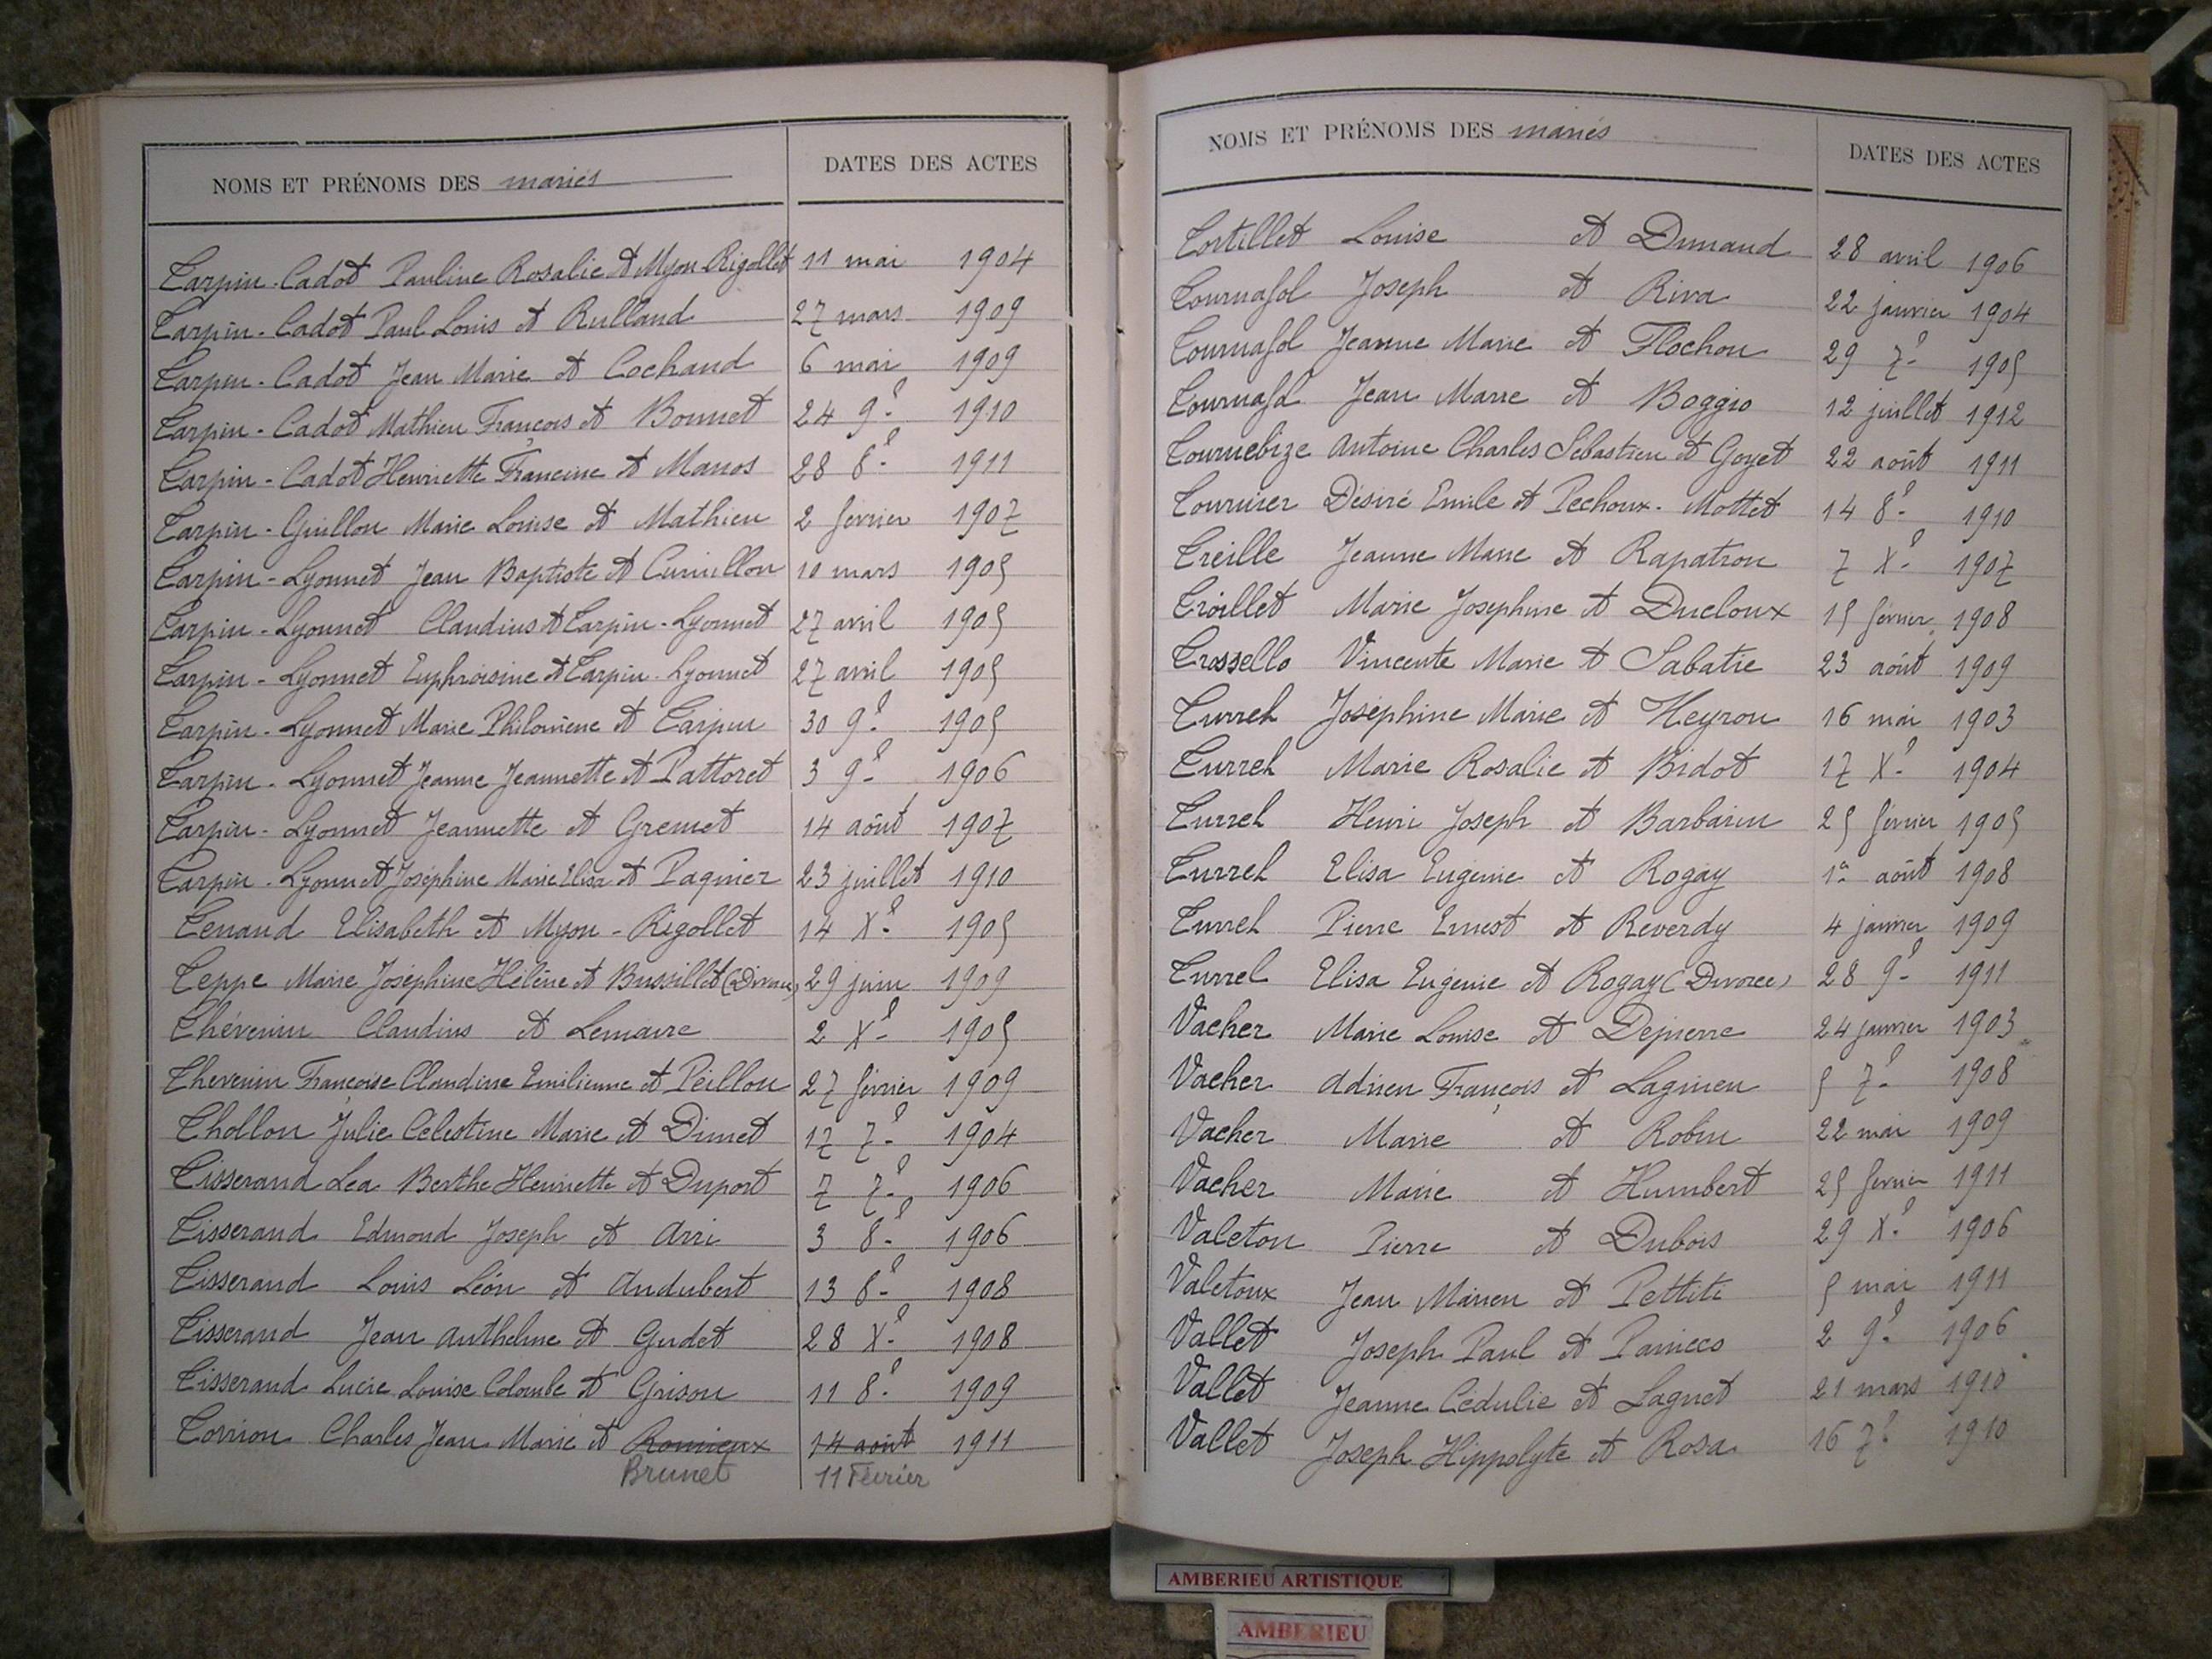 NOMS ET PRÉNOMS DES mariés DATES DES ACTES
Tarpin-Cadot Pauline Rosalie et Myon-Rigollet 11 mai 1904
Tarpin-Cadot Paul Louis et Rulland 27 mars 1909
Tarpin-Cadot Jean Marie et Cochand 6 mai 1909
Tarpin-Cadot Mathieu François et Bonnet 24 9e 1910
Tarpin-Cadot Henriette Francine et Manos 28 8e 1911
Tarpin-Guillon Marie Louise et Mathieu 2 février 1907
Tarpin-Lyonnet Jean Baptiste et Curvillon 10 mars 1905
Tarpin-Lyonnet Claudius et Tarpin-Lyonnet 27 avril 1905
Tarpin-Lyonnet Euphroisine et Tarpin-Lyonnet 27 avril 1905
Tarpin-Lyonnet Marie Philomène et Tarpin 30 9e 1905
Tarpin-Lyonnet Jeanne Jeannette et Pattoret 3 9e 1906
Tarpin-Lyonnet Jeannette et Gremet 14 août 1907
Tarpin-Lyonnet Joséphine Marie Elisa et Pagnier 23 juillet 1910
Tenand Elisabeth et Myon-Rigollet 14 Xe 1905
Teppe Marie Joséphine Hélène et Bussillet (Divorce) 29 juin 1909
Thévenin Claudius et Lemaire 2 Xe 1905
Thevenin Françoise Claudine Emilienne et Peillon 27 février 1909
Thollon Julie Célestine Marie et Dimet 17 7e 1904
Tisserand Lea Berthe Henriette et Duport 7 7e 1906
Tisserand Edmond Joseph et Arri 3 8e 1906
Tisserand Louis Léon et Andubert 13 8e 1908
Tisserand Jean Anthelme et Gudet 28 Xe 1908
Tisserand Lucie Louise Colombe et Grison 11 8e 1909
Torrion Charles Jean Marie et Romieux 14 août 1911
Brunet 11 Février
NOMS ET PRÉNOMS DES mariés DATES DES ACTES
Tortillet Louise et Dunand 28 avril 1906
Tournassol Joseph et Riva 22 janvier 1904
Tournassol Jeanne Marie et Flochon 29 7e 1905
Tournassol Jean Marie et Boggio 12 juillet 1912
Tournebize Antoine Charles Sébastien et Goyet 22 août 1911
Tournier Désiré Emile et Pechoux-Mottet 14 8e 1910
Treille Jeanne Marie et Rapatron 7 Xe 1907
Troillet Marie Josephine et Ducloux 15 février 1908
Trossello Vincente Marie et Sabatie 23 août 1909
Turrel Joséphine Marie et Heyron 16 mai 1903
Turrel Marie Rosalie et Bidot 17 Xe 1904
Turrel Henri Joseph et Barbarin 25 février 1905
Turrel Elisa Eugénie et Rogay 1er août 1908
Turrel Pierre Ernest et Reverdy 4 janvier 1909
Turrel Elisa Eugénie et Rogay (Divorce) 28 9e 1911
Vacher Marie Louise et Depierre 24 janvier 1903
Vacher Adrien François et Lagnieu 5 7e 1908
Vacher Marie et Robin 22 mai 1909
Vacher Marie et Humbert 25 février 1911
Valeton Pierre et Dubois 29 Xe 1906
Valetoux Jean Marien et Pettiti 5 mai 1911
Vallet Joseph Paul et 2 9e 1906
Vallet Jeanne Cédulie et Lagnet 21 mars 1910
Vallet Joseph Hippolyte et Rosa 16 7e 1910
AMBERIEU ARTISTIQUE
AMBERIEU